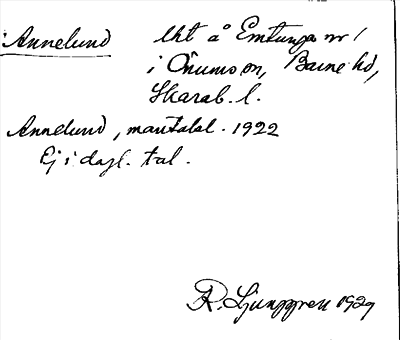 Annelund lht å Emtunga nr 1
i Önum sn, Barne hd,
Skarab. l.
Annelund, mantalsl. 1922
Ej i dagl. tal.
R. Ljunggren 1929